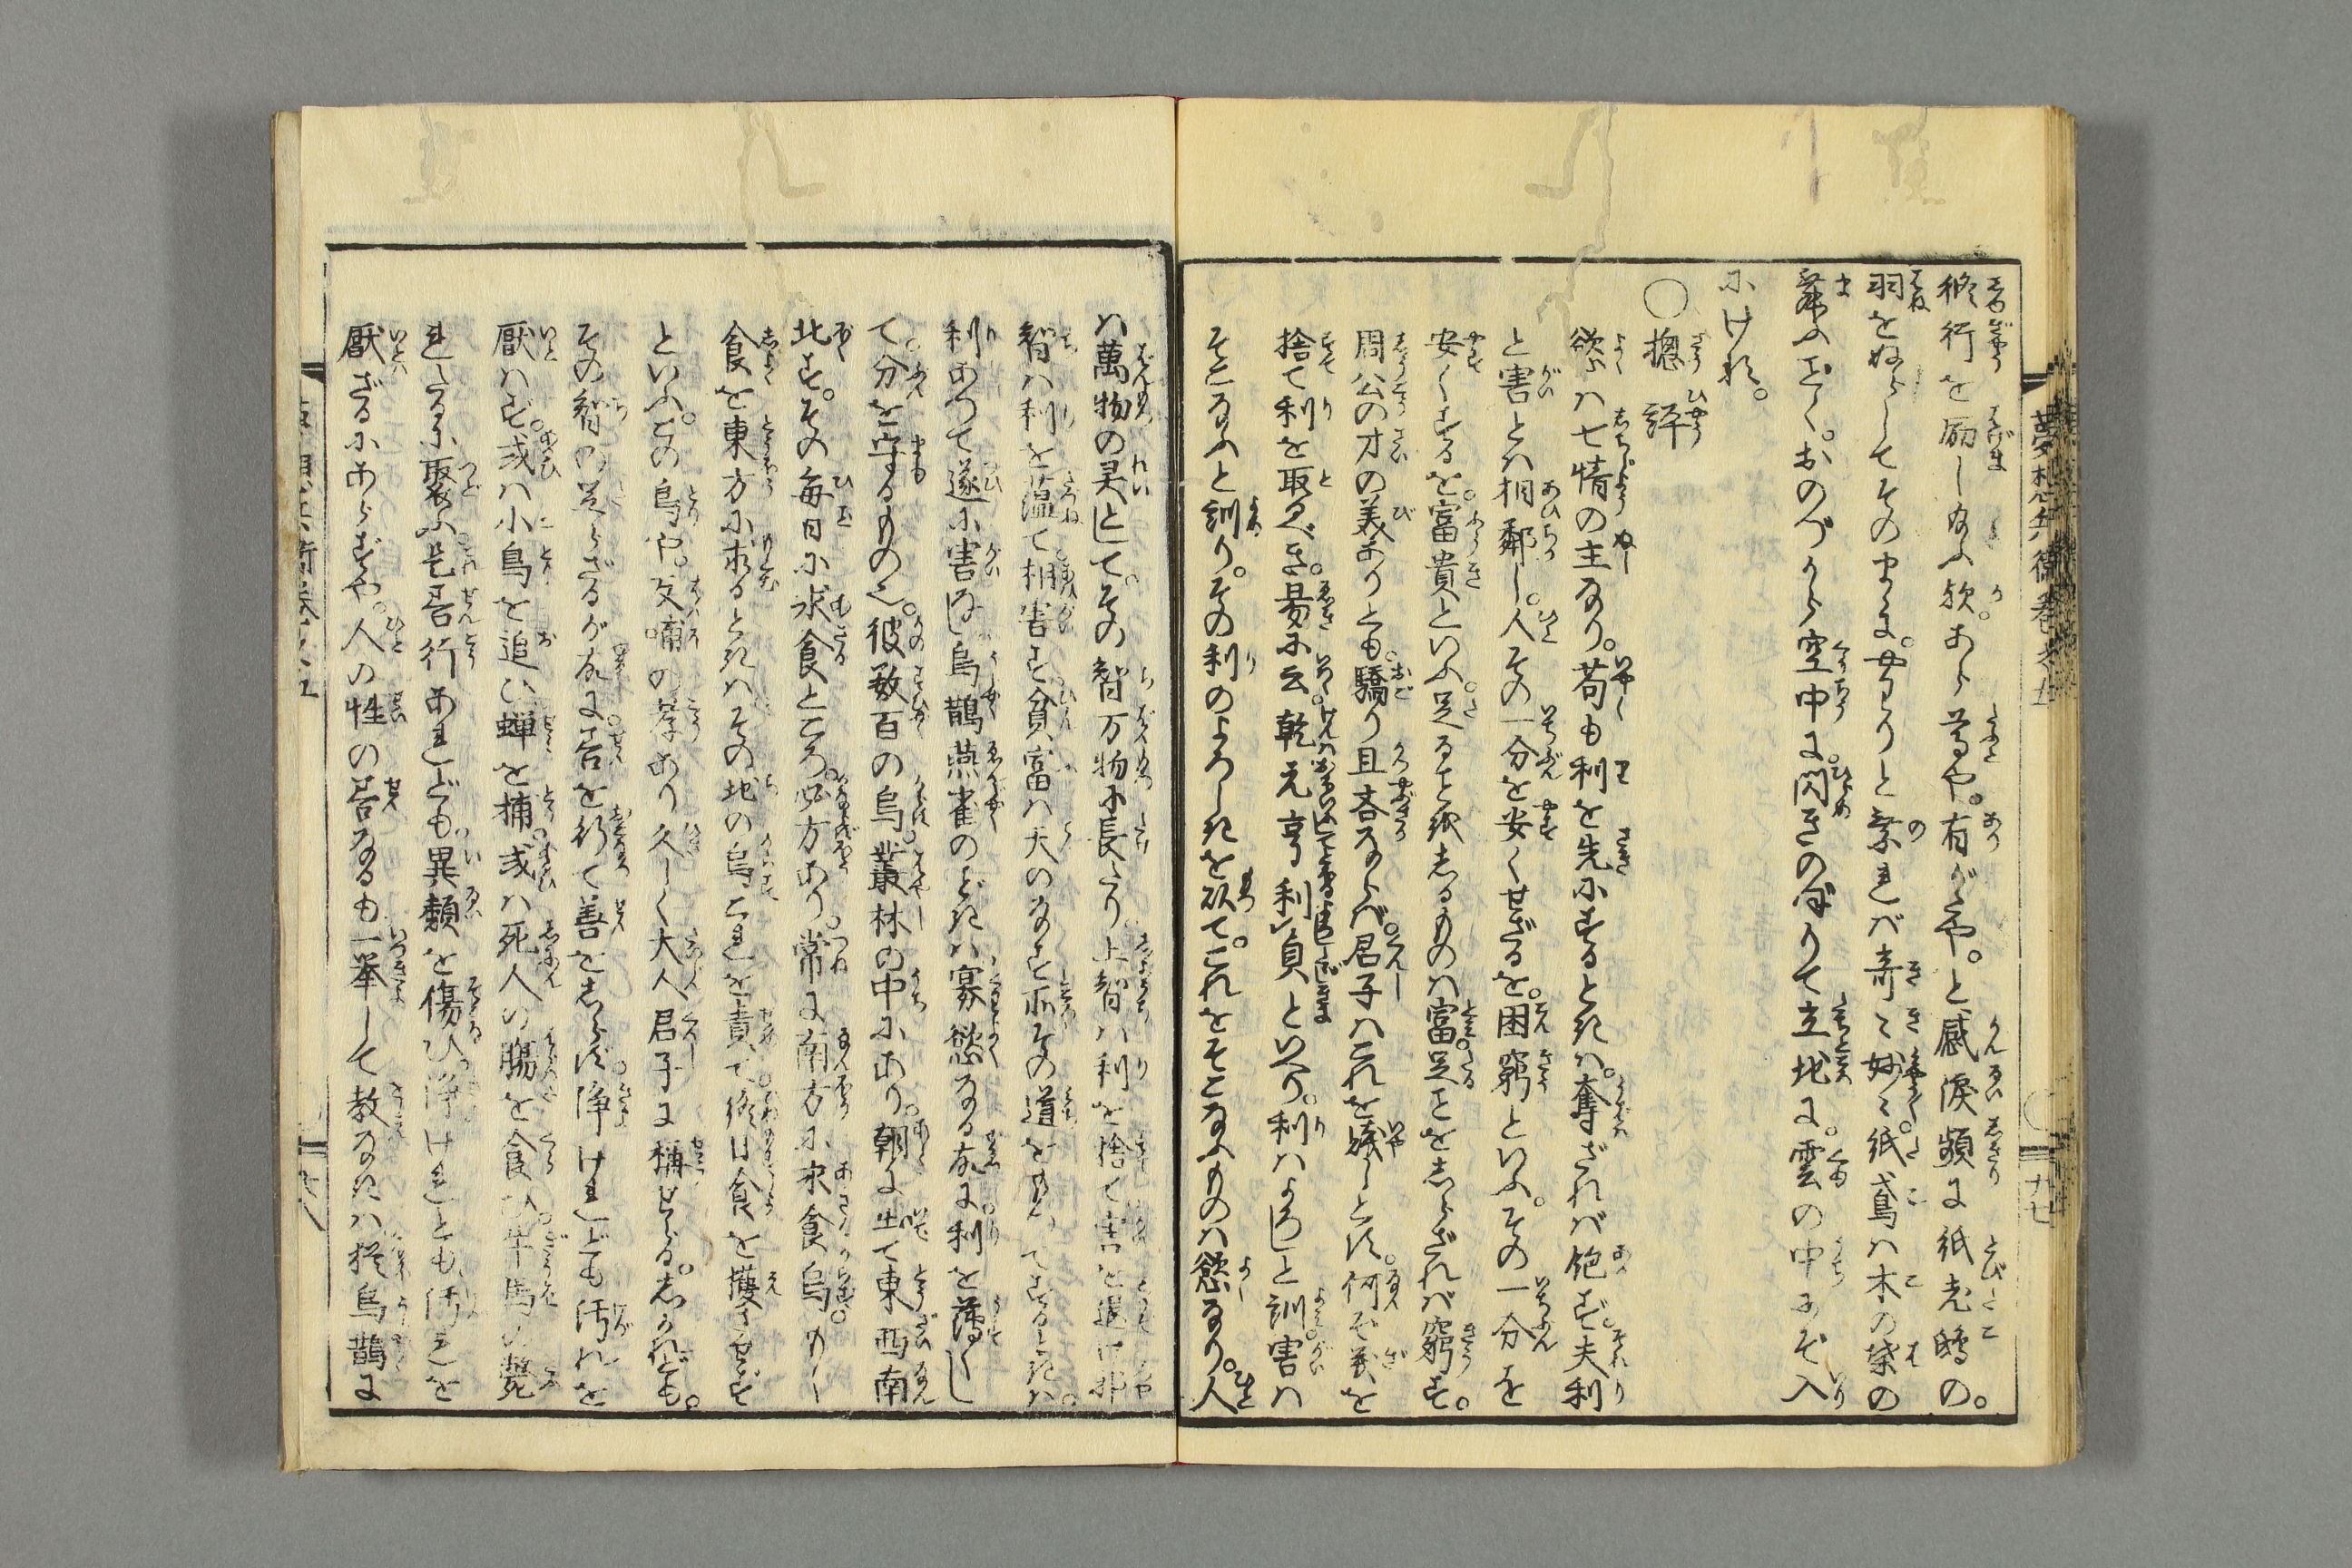 夢想兵衛巻之五
修行を励し給ふ歟。あら尊や。有がたや。と感涙頻に紙老鴟の。
羽をぬらしてそのまゝに。母りと乗れば奇々妙々。紙鳶は木の葉の
舞ふごとく。おのづから空中に。閃きのぼりて立地に。雲の中にぞ入
にけり。
○摠評
欲は七情の主なり。苟も利を先にするときは。奪ざれば飽ず。夫利
と害とは相鄰し。人その一分を安くせざるを。困窮といふ。その一分を
安くするを。富貴といふ。足ることをしるものは富。足ことをしらざれば窮す。
周公の才の美ありとも。驕り且吝ならば。君子はこれを賤しとす。何ぞ義を
捨て利を取るべき。易に云。乾元亨利貞といへり。利はよろしと訓。害は
そこなふと訓り。その利のよろしきを欲て。これをそこなふものは慾なり。人
は萬物の灵として。その智万物に長たり。上智は利を捨て害を退け。邪
智は利を蘊て相害す。貧富は天のなす所。その道をもつてするときは。
利あつて遂に害なし。烏鵲燕雀のごときは。寡慾なる故に。利を薄くし
て。分を守るもの也。彼数百の烏。叢林の中にあり。朝に出て東西南
北す。その毎日に求食ところ。必方あり。常に南方に求食烏。もし
食を東方に求るときは。その地の烏これを責て。終日食を獲させず
といふ。この鳥や。反哺の孝あり。久しく大人君子に稱せらる。しかれども。
その智の足らざるが故に。悪を行て善をしらず。浄けれども汚れを
厭はず。或は小鳥を追ひ蝉を捕。或は死人の腸を食ひ。牛馬の斃
れたるに聚ふ。是善行あれども異類を傷ひ。浄けれとも汚れを
厭ざるにあらずや。人の性の善なるも一挙して教なきは。猶烏鵲に